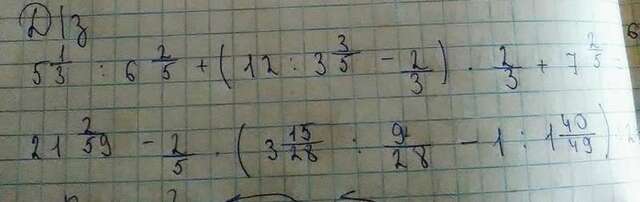 Д/з
5 1/3 : 6 2/5 + ( 12 : 3 3/5 - 2/3 ) · 2/3 + 7 2/5
21 2/59 - 2/5 · ( 3 15/28 : 9/28 - 1 : 1 40/49 )